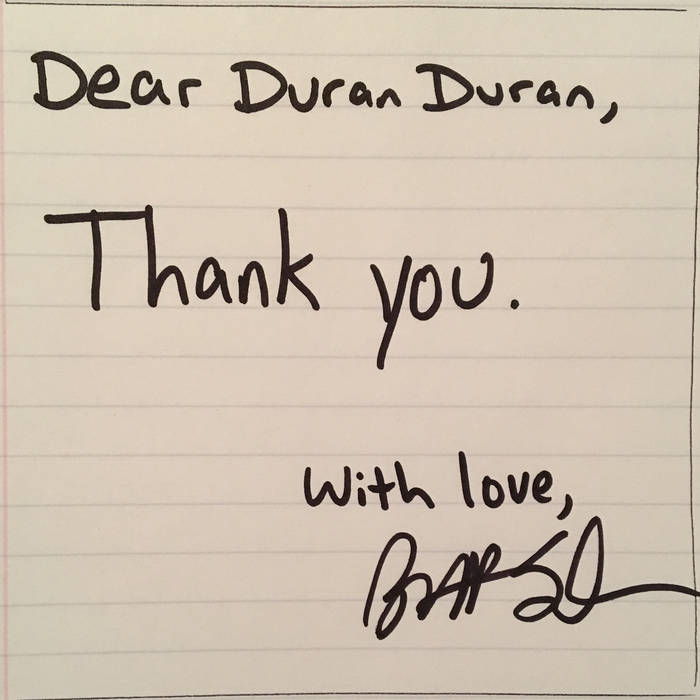 Dear Duran Duran,
Thank you.
With love,